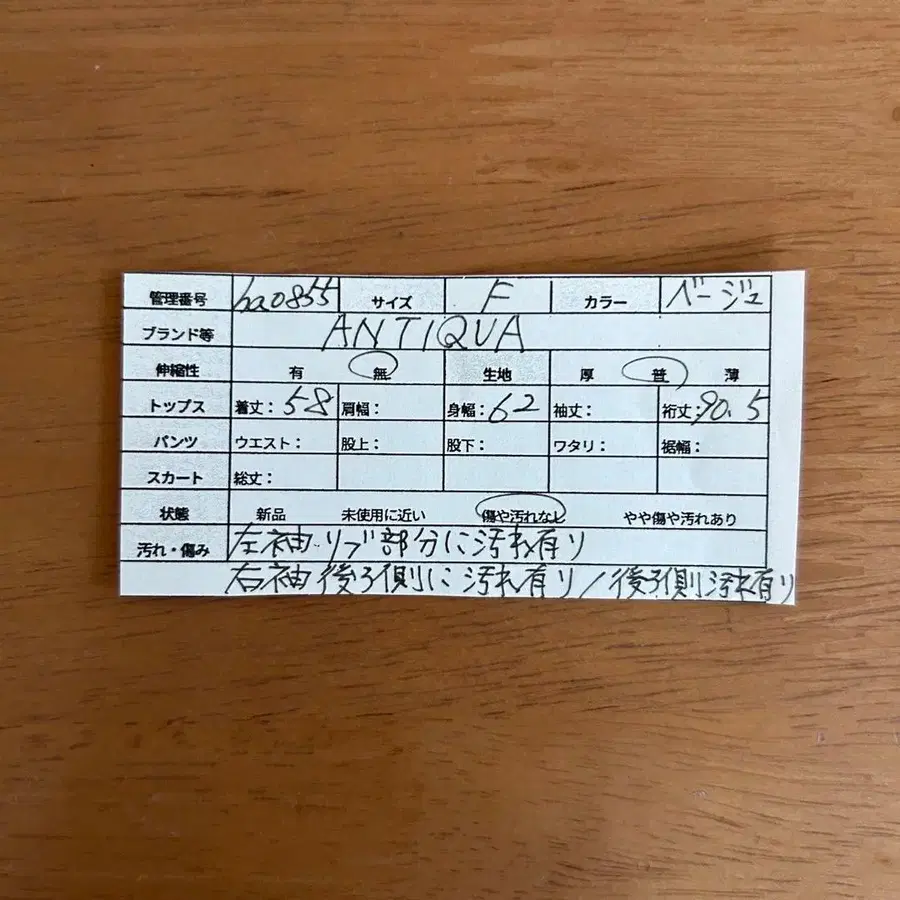 管理番号 ha0855 サイズ F カラー ベージュ
ブランド等 ANTIQUA
伸縮性 有 無 生地 厚 普 薄
トップス 着丈：58 肩幅： 身幅：62 袖丈： 裄丈：90.5
パンツ ウエスト： 股上： 股下： ワタリ： 裾幅：
スカート 総丈：
状態 新品 未使用に近い 傷や汚れなし やや傷や汚れあり
汚れ・傷み 左袖リブ部分に汚れ有り
右袖後ろ側に汚れ有り/後ろ側汚れ有り